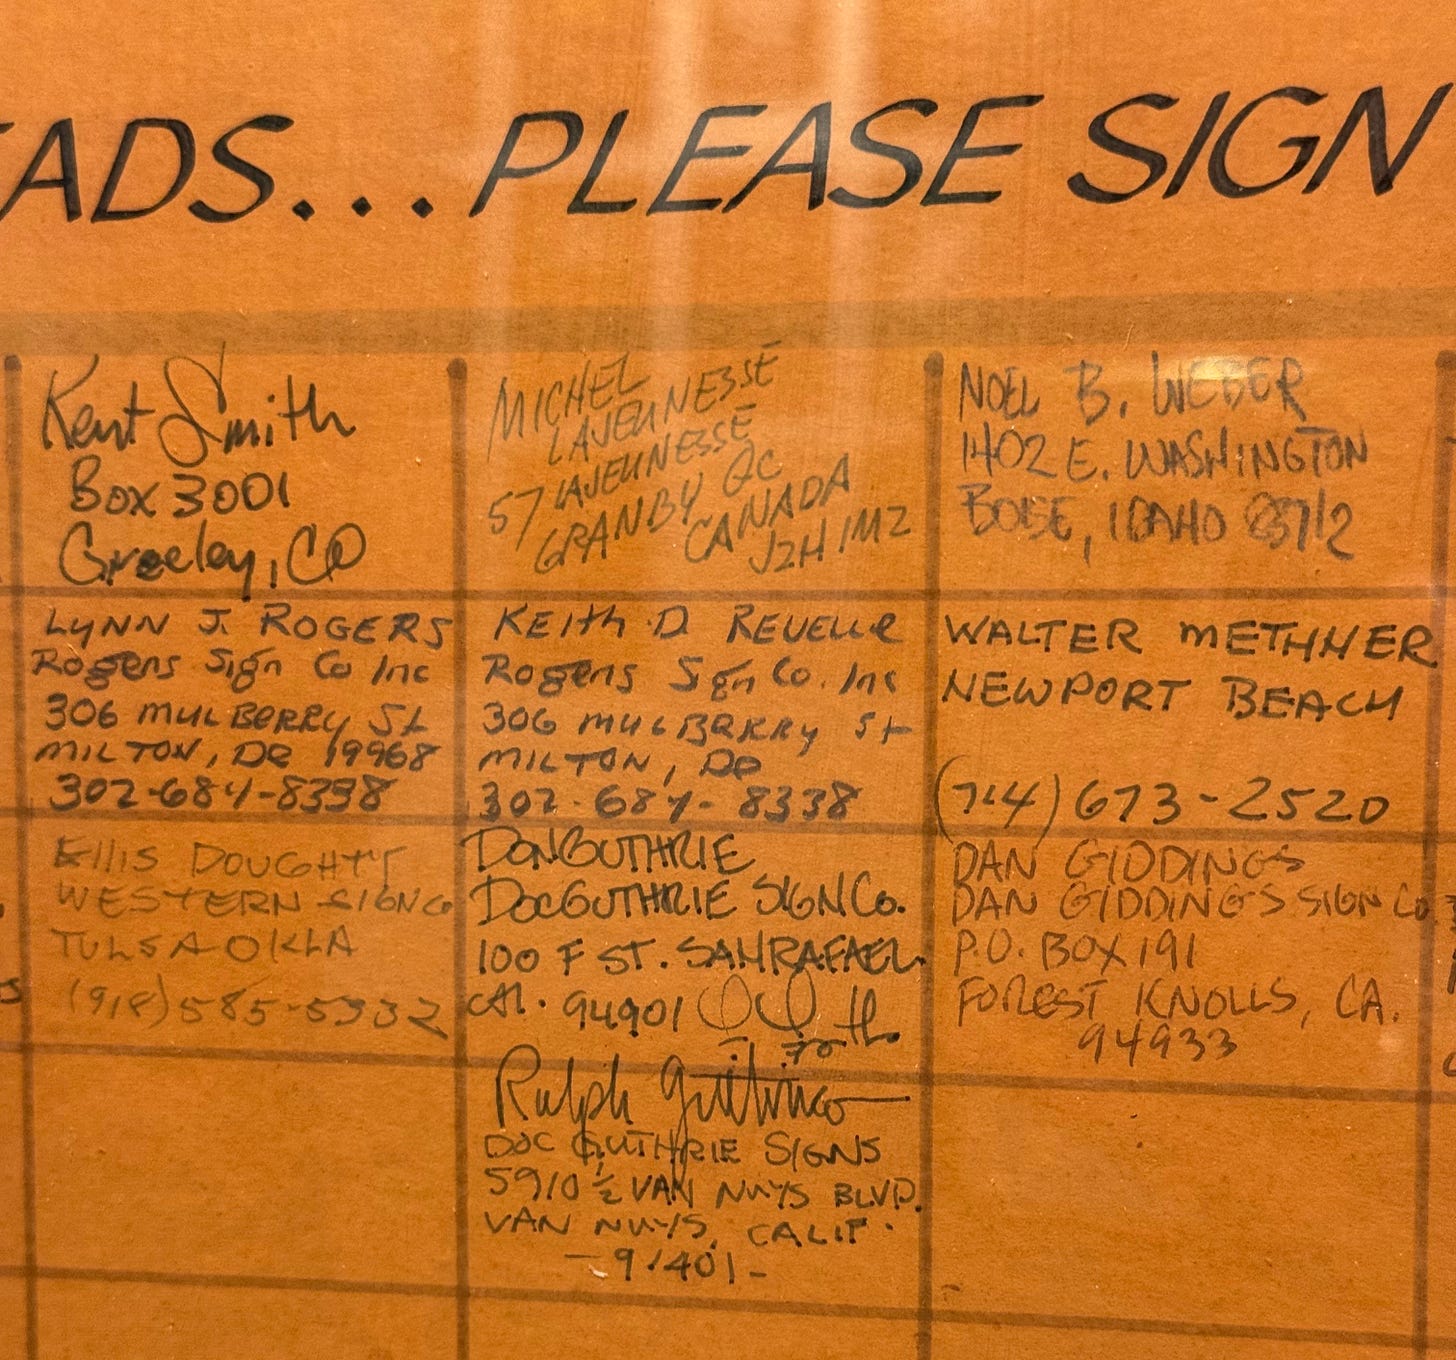 EADS... PLEASE SIGN
Kent Smith
Box 3001
Greeley, CO
MICHEL
LAJEUNESSE
57 LAJEUNESSE
GRANBY QC
CANADA
J2H 1M2
NOEL B. WEBER
1402 E. WASHINGTON
BOISE, IDAHO 83712
LYNN J. ROGERS
Rogers Sign Co Inc
306 MULBERRY St
MILTON, DE 19968
302-684-8338
KEith D. REVELLE
Rogers Sign Co. Inc
306 MULBERRY St
MILTON, De
302-684-8338
WALTER METHNER
NEWPORT BEACH
(714) 673-2520
Ellis DOUGHTY
WESTERN SIGN Co
TULSA OKLA
(918) 585-5332
DON GUTHRIE
DOC GUTHRIE SIGN Co.
100 F ST. SAN RAFAEL
CAl. 94901
DAN GIDDINGS
DAN GIDDINGS SIGN Co.
P.O. BOX 191
FOREST KNOLLS, CA.
94933
Ralph
DOC GUTHRIE SIGNS
5910 ½ VAN NUYS BLVD.
VAN NUYS, CALIF.
-91401-